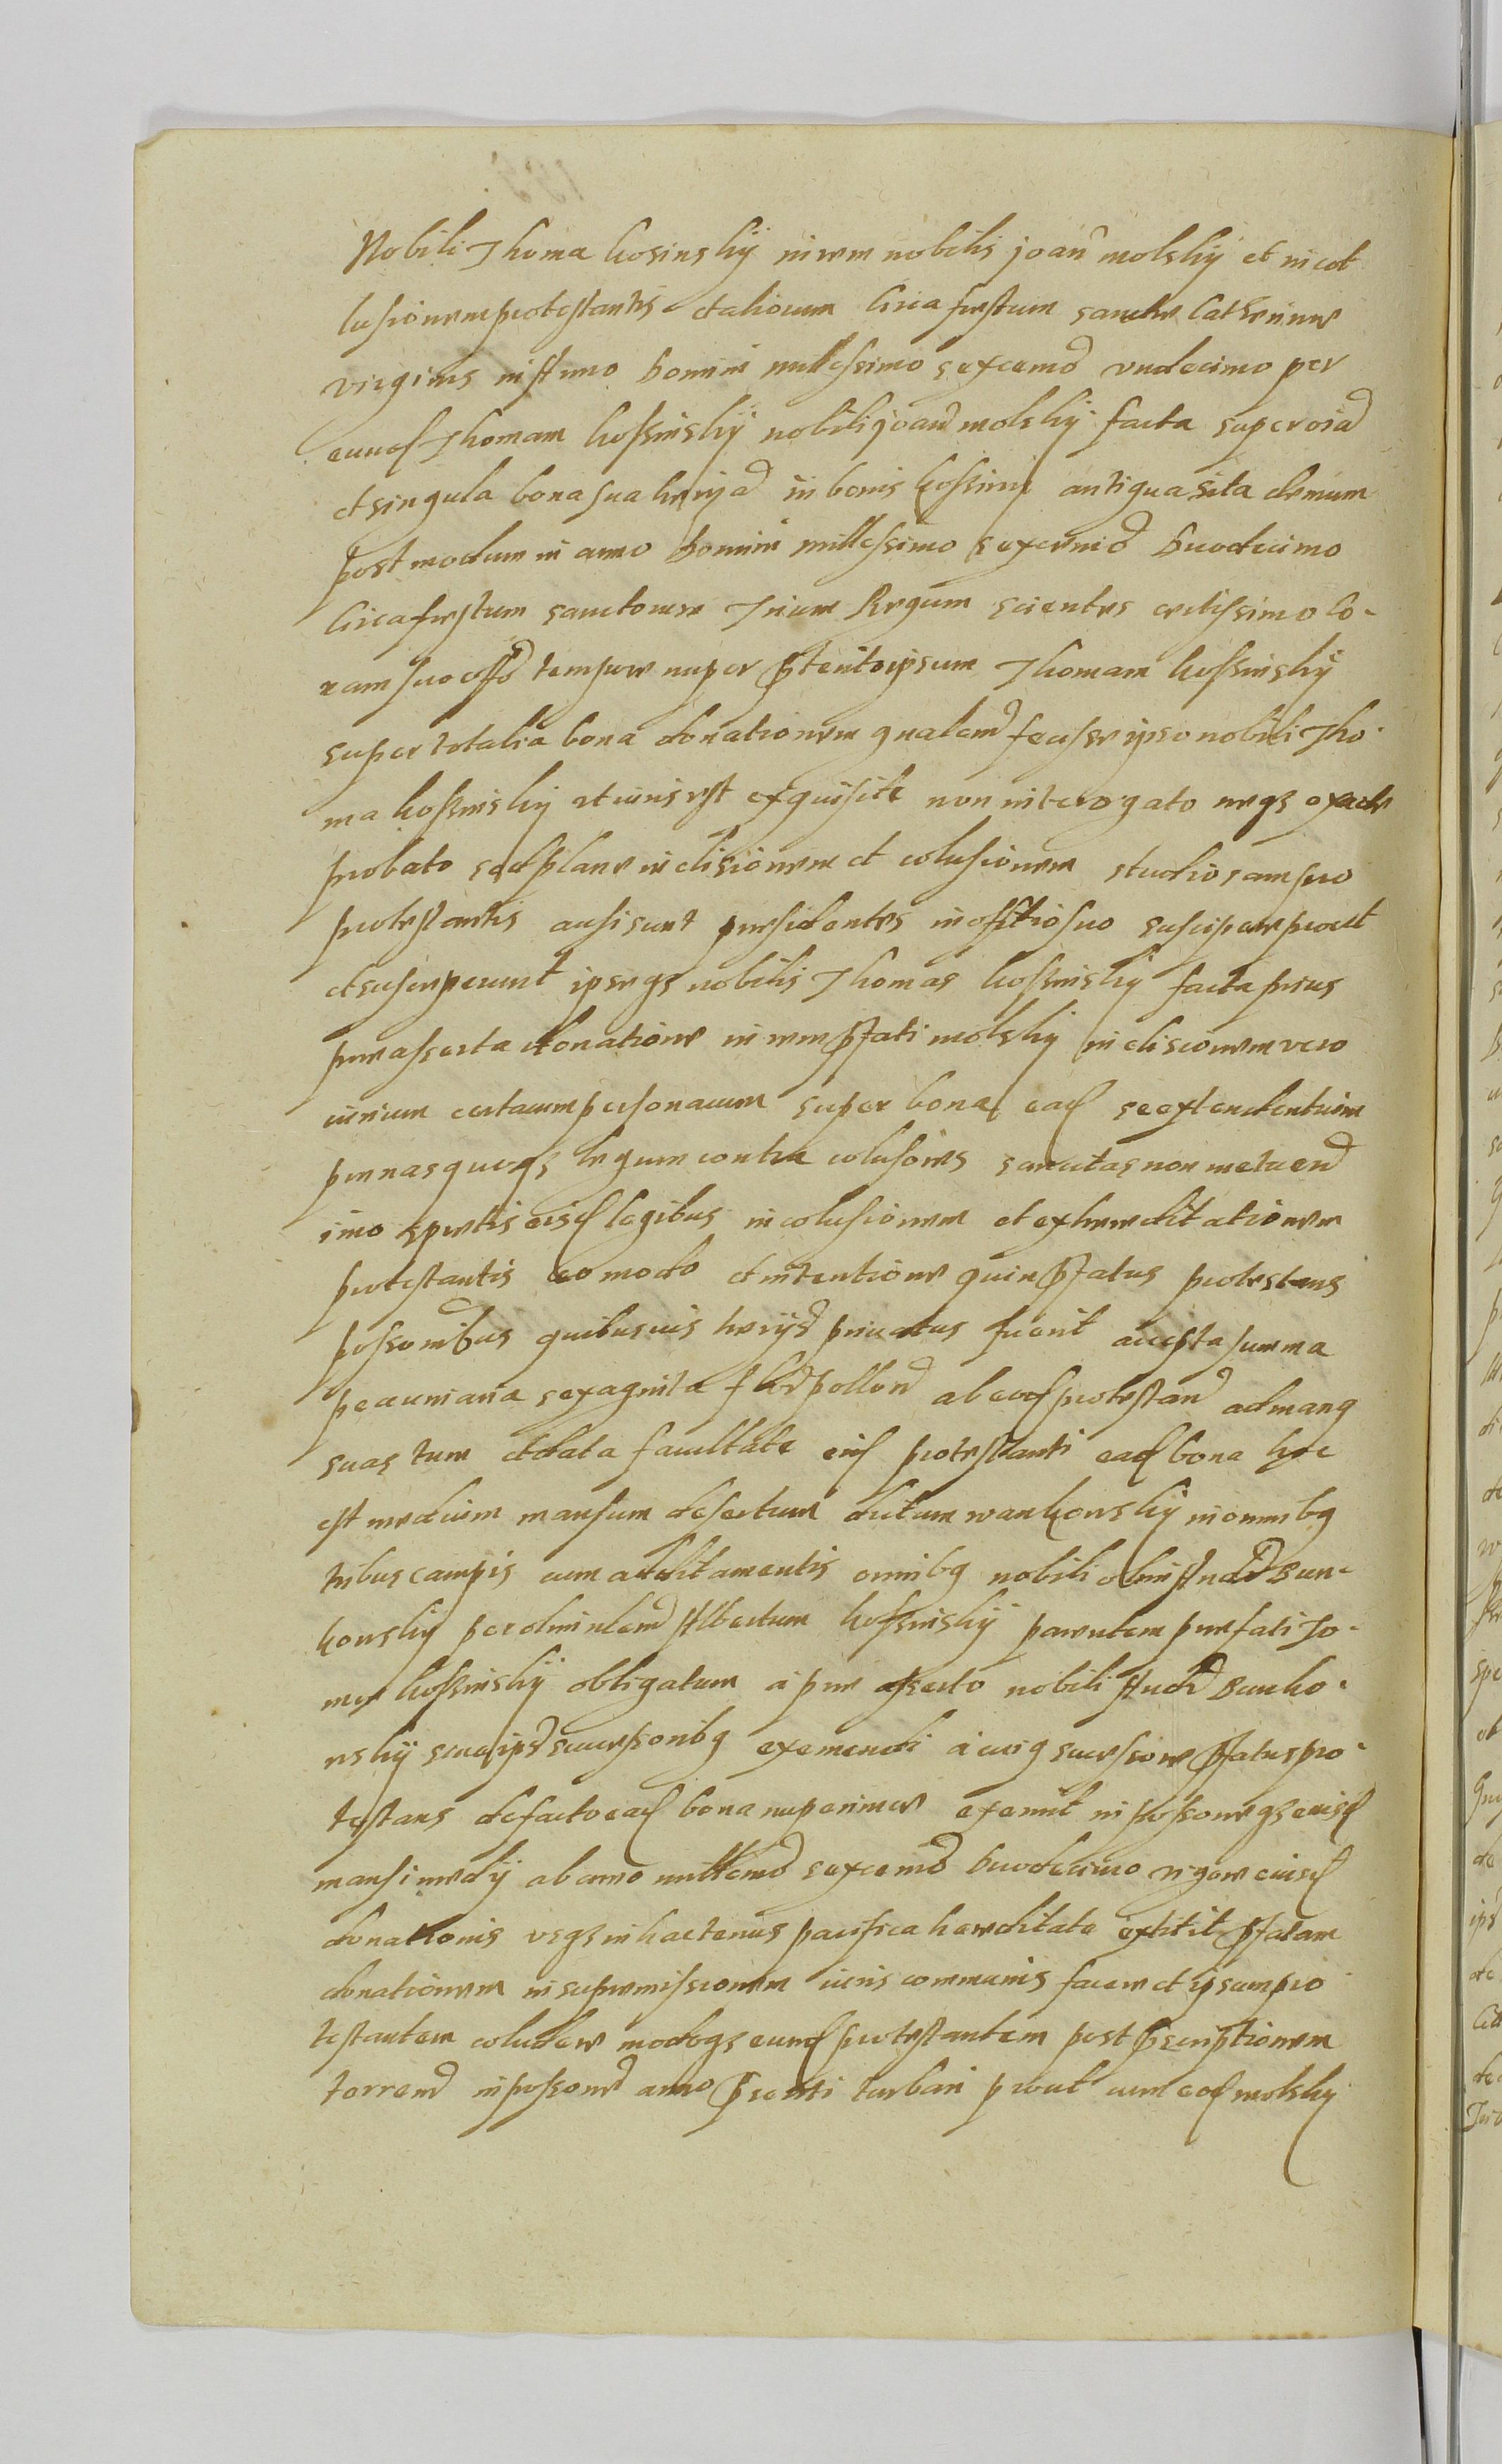 Nobili Thoma Kosinskÿ in rem nobilis joan molskÿ et in col
lusionem protestantis et aliorum Circa festum sanctae Catherinae
virginis in Anno Domini millesimo sexcenᵒ undecimo per
eund Thomam Kossinskÿ nobili joani molskÿ facta super oīa
et singula bona sua hrīja in bonis Kossinÿ antiqua sita demum
post modum in anno Domini millesimo sexcenᵒ Duodecimo
Circa festum sanctorum Trium Regum scientes certissimo Co-
ram suo offo tempore nuper pterito ipsum Thomam Kossinskÿ
super totalia bona donationem qualem fecisse ipso nobili Tho-
ma Kossinskÿ ut iuris est exquisite non interogato neqz exacte
probato sed plane in elisionem et colusionem studiosam pro
protestantis ausi sunt presidentes in offitio suo suscipere prout
et susceperunt ipseqz nobilis Thomas Kossinskÿ facta prius
praeasserta donatione in rem pfati molskÿ in elisionem vero
iurium certarum personarum super bona ead se extendentium
poenasqueqz legum contra colusores sancitas non metuend
imo spretis eisd legibus in colusionem et exhaereditationem
protestantis eo modo et intentione quin pfatus protestans
possonibus quibusuis hrijs priuatus fuerit accepta summa
pecuniaria sexaginta flor pollon ab eod protestan ad manq
suas tum et data facultate eid protestanti ead bona hoc
est medium mansum desertum dictum wankowskÿ in omnibq
tribus campis cum additamentis omnibq nobili olim And Ban-
kowskÿ per olim nlem Albertum Kossinskÿ parentem praefati To-
mae Kossinskÿ obligatum a prae asserto nobili And Banko-
wskÿ siue ips successoribq exemendi a cuiq sucessore pfatus pro-
testans de facto ead bona nuperime exemit in possoneqz eiusd
mansi medÿ ab anno millemo sexcenmo Duodecimo vigore eiusd
donationis usqz in hactenus pacifica haereditate extitit pfatam
donationem in supremissionem iuris communis facere et ipsum pro
testantem coludere modoqz eund protestantem post pscriptionem
terren in posson anno psenti turbari prout cum eod molskÿ